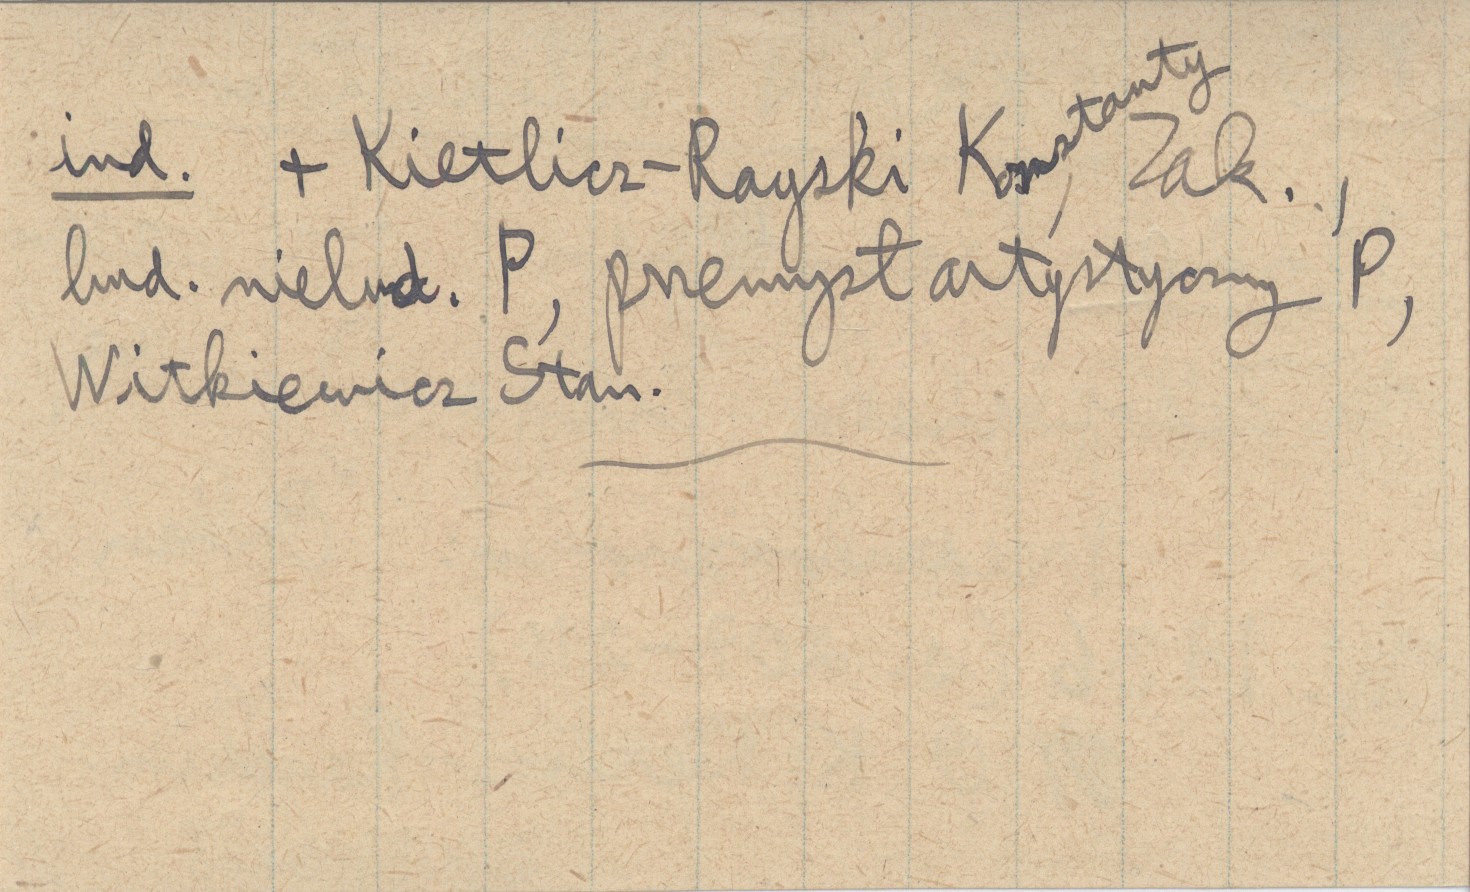 ind. + Kietlicz-Rayski Konstanty, Zak.,
bud. nielud. P, przemysł artystyczny P,
Witkiewicz Stan.